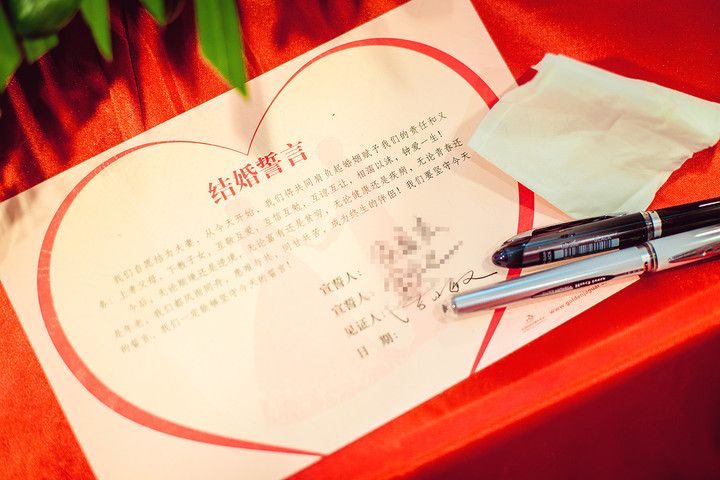 结婚誓言
我们自愿结为夫妻，从今天开始，我们将共同肩负起婚姻赋予我们的责任和义
务：上孝父母，下教子女，互敬互爱，互信互勉，互谅互让，相濡以沫，钟爱一生！
今后，无论顺境还是逆境，无论富有还是贫穷，无论健康还是疾病，无论青春还
是年老，我们都风雨同舟，患难与共，同甘共苦，成为终生的伴侣！我们要坚守今天
的誓言，我们一定能够坚守今天的誓言！
宣誓人：
宣誓人：
见证人：
日 期：
www.golden